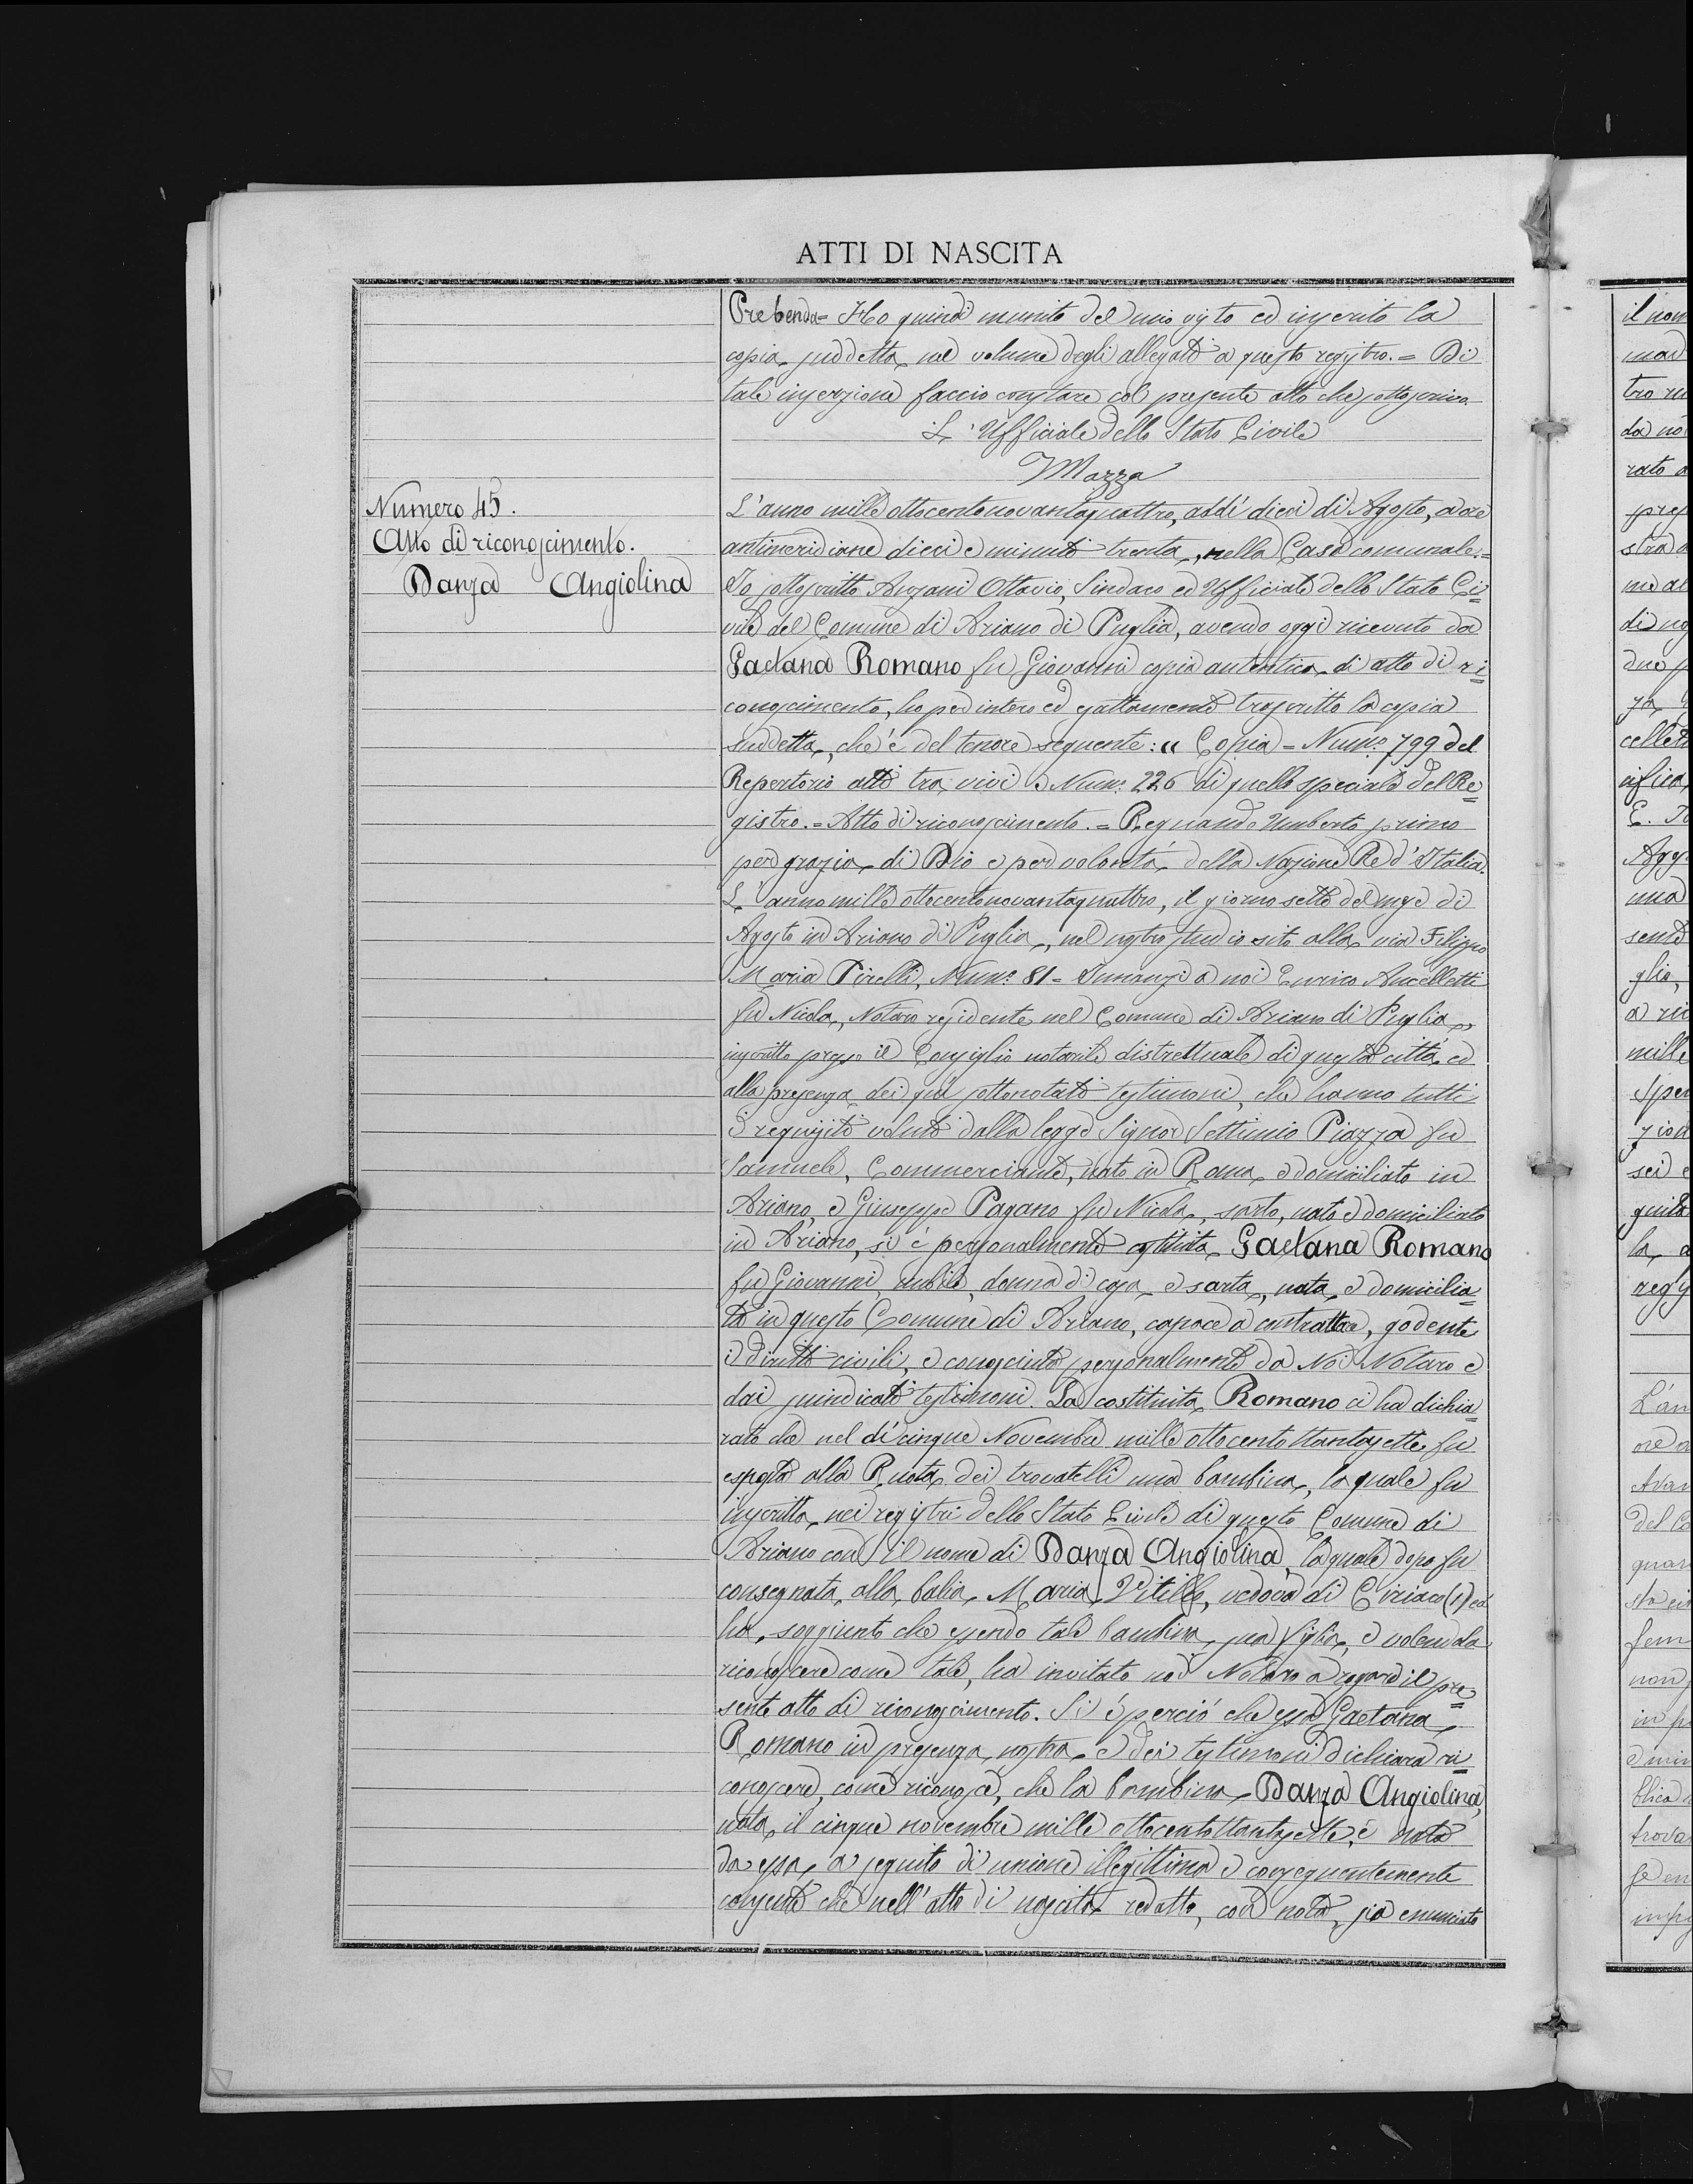 ATTI DI NASCITA
Prebenda = Ho quindi munito del mio visto ed inserito la
copia suddetta nel volume degli allegati a questo registro. = Di
tale inserzione faccio constare col presente atto che sottoscrivo.
L'Ufficiale dello Stato Civile
Mazza
Numero 45.
Atto di riconoscimento.
Danza Angiolina
L'anno mille ottocentonovantaquattro, addì dieci di Agosto, a ore
antimeridiane dieci e minuti trenta, nella Casa comunale. =
Io sottoscritto Anzani Ottavio, Sindaco ed Ufficiale dello Stato Ci=
vile del Comune di Ariano di Puglia, avendo oggi ricevuto da
Gaetana Romano fu Giovanni copia autentica di atto di ri=
conoscimento, ho per intero ed esattamente trascritto la copia
suddetta, che è del tenore seguente: " Copia = Num.o 799 del
Repertorio atti tra vivi e Num.o 226 di quello speciale del Re=
gistro. = Atto di riconoscimento. = Regnando Umberto primo
per grazia di Dio e per volontà della Nazione Re d'Italia.
L'anno mille ottocentonovantaquattro, il giorno sette del mese di
Agosto in Ariano di Puglia, nel nostro studio sito alla via Filippo
Maria Pirelli, Num.o 81 = Innanzi a noi Enrico Aucelletti
fu Nicola, Notaro residente nel Comune di Ariano di Puglia,
inscritto presso il Consiglio notarile distrettuale di questa città, ed
alla presenza dei qui sottonotati testimoni, che hanno tutti
i requisiti voluti dalla legge Signor Settimio Piazza fu
Samuele, Commerciante, nato in Roma e domiciliato in
Ariano, e Giuseppe Pagano fu Nicola, sarto, nato e domiciliato
in Ariano, si è personalmente costituita Gaetana Romano
fu Giovanni, nubile, donna di casa e sarta, nata e domicilia=
ta in questo Comune di Ariano, capace a contrattare, godente
i diritti civili, e conosciuta personalmente da Noi Notaro e
dai suindicati testimoni. La costituita Romano ci ha dichia=
rato che nel dì cinque Novembre mille ottocentottantasette fu
esposta alla Ruota dei trovatelli una bambina, la quale fu
inscritta nei registri dello Stato Civile di questo Comune di
Ariano con il nome di Danza Angiolina, la quale dopo fu
consegnata alla balia Maria Vitillo, vedova di Ciriaco (1) ed
ha soggiunto che essendo tale bambina sua figlia, e volendola
riconoscere come tale, ha invitato noi Notaro a rogare il pre=
sente atto di riconoscimento. Si è perciò che essa Gaetana
Romano in presenza nostra e dei testimoni dichiara ri=
conoscere, come riconosce, che la bambina Danza Angiolina,
nata il cinque novembre mille ottocentottantasette, è nata
da essa a seguito di unione illegittima e conseguentemente
consente che nell'atto di nascita redatto, con nota, sia enunciato